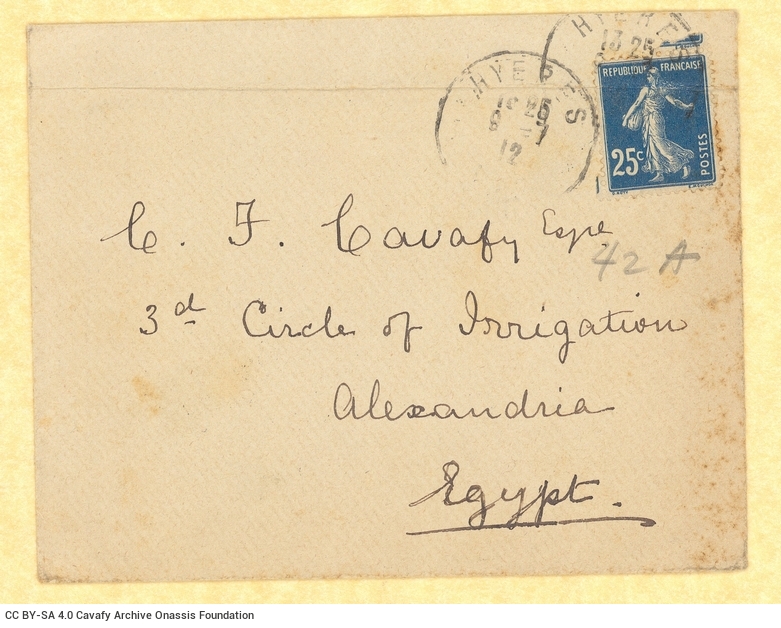 HYERES
13 25
HYERES
REPUBLIQUE FRANCAISE
25c
POSTES
12
C. F. Cavafy Esqre
42 A
3rd Circle of Irrigation
Alexandria
Egypt.
CC BY-SA 4.0 Cavafy Archive Onassis Foundation